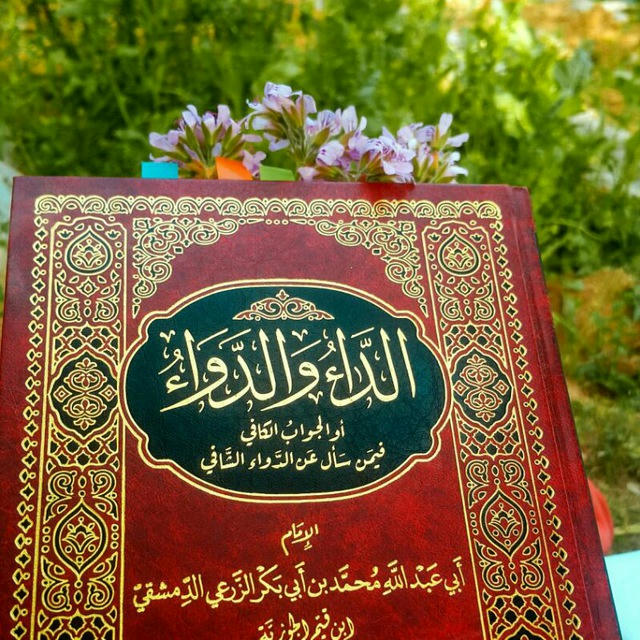 الدَّاءُ وَالدَّوَاءُ
أو الجوابُ الكافي
فيمَن سَأل عَن الدَّواء الشَّافي
الإمَام
أبي عَبْد اللَّهِ مُحمَّد بن أبي بَكْر الزَّرعي الدِّمشقيّ
ابن قيّم الجوزيَّة